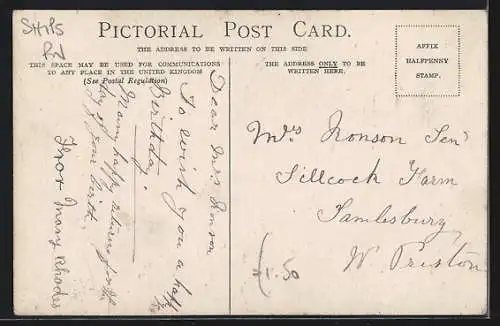 Ships
PICTORIAL POST CARD.
THE ADDRESS TO BE WRITTEN ON THIS SIDE
THIS SPACE MAY BE USED FOR COMMUNICATIONS
TO ANY PLACE IN THE UNITED KINGDOM
(See Postal Regulation)
THE ADDRESS ONLY TO BE
WRITTEN HERE.
AFFIX
HALFPENNY
STAMP.
Dear Mrs Ronson
To wish you a happy
Birthday.
Many happy returns from the
day of your birth.
From Mary Rhodes
Mrs Ronson Sen
Sillcock Farm
Samlesbury
Nr Preston
1.50